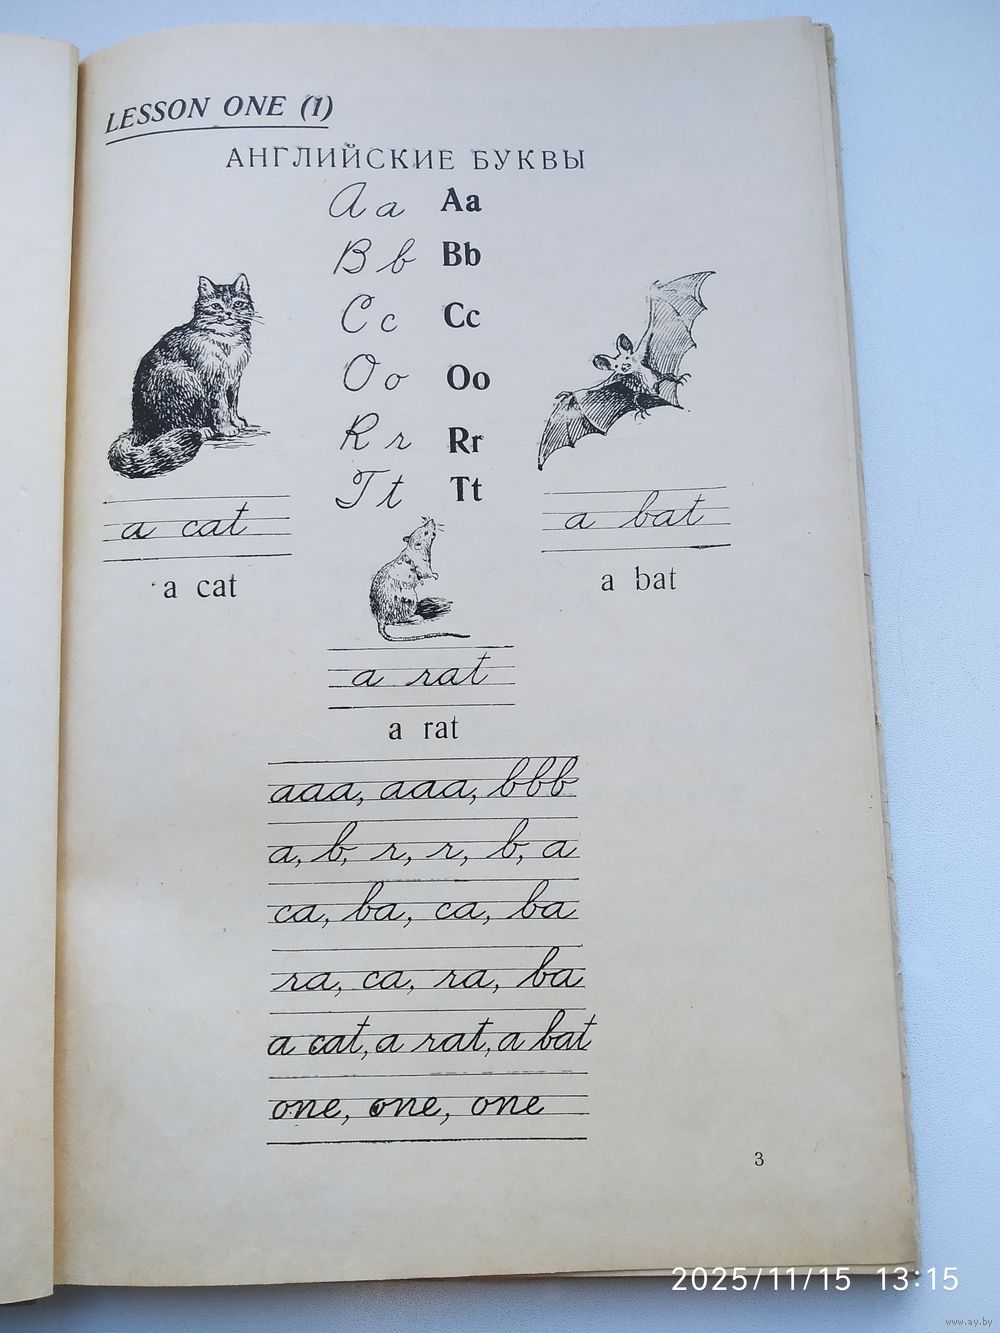 LESSON ONE (1)
АНГЛИЙСКИЕ БУКВЫ
Aa Aa
Bb Bb
Cc Cc
Oo Oo
Rr Rr
Tt Tt
a cat
a cat
a bat
a bat
a rat
a rat
aaa, aaa, bbb
a, b, r, r, b, a
ca, ba, ca, ba
ra, ca, ra, ba
a cat, a rat, a bat
one, one, one
3
2025/11/15 13:15
www.ay.by